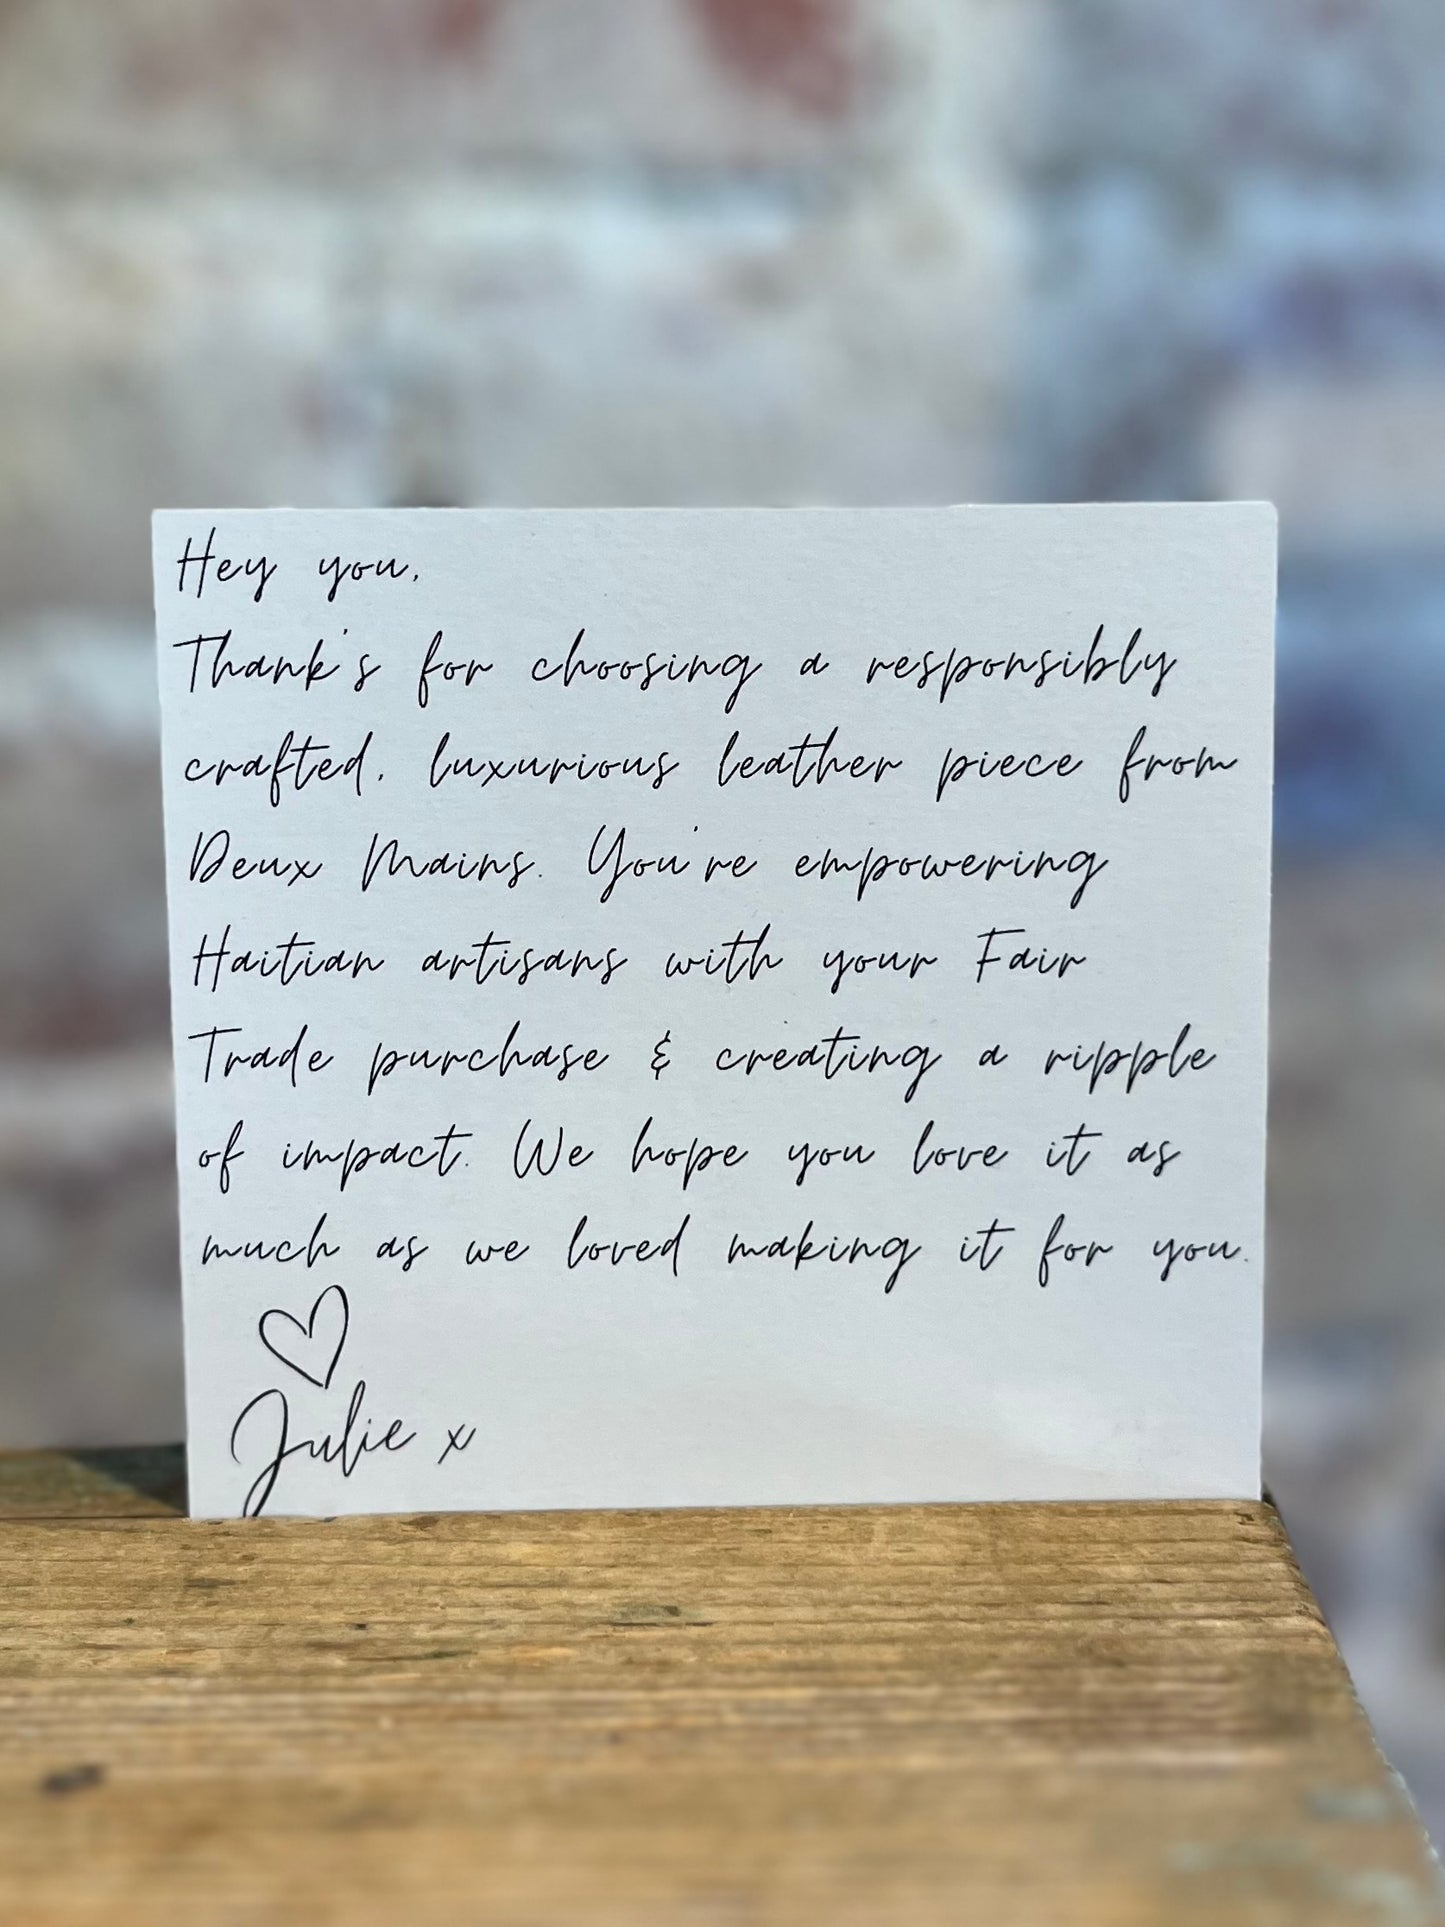 Hey you,
Thank's for choosing a responsibly
crafted, luxurious leather piece from
Deux Mains. You're empowering
Haitian artisans with your Fair
Trade purchase & creating a ripple
of impact. We hope you love it as
much as we loved making it for you.
Julie x